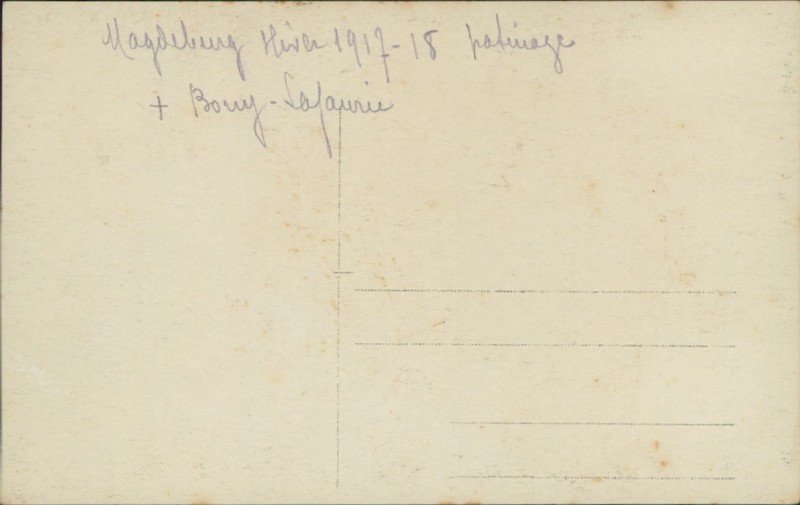 Magdeburg Hiver 1917-18 patinage
+ Bouy-Lafaurie